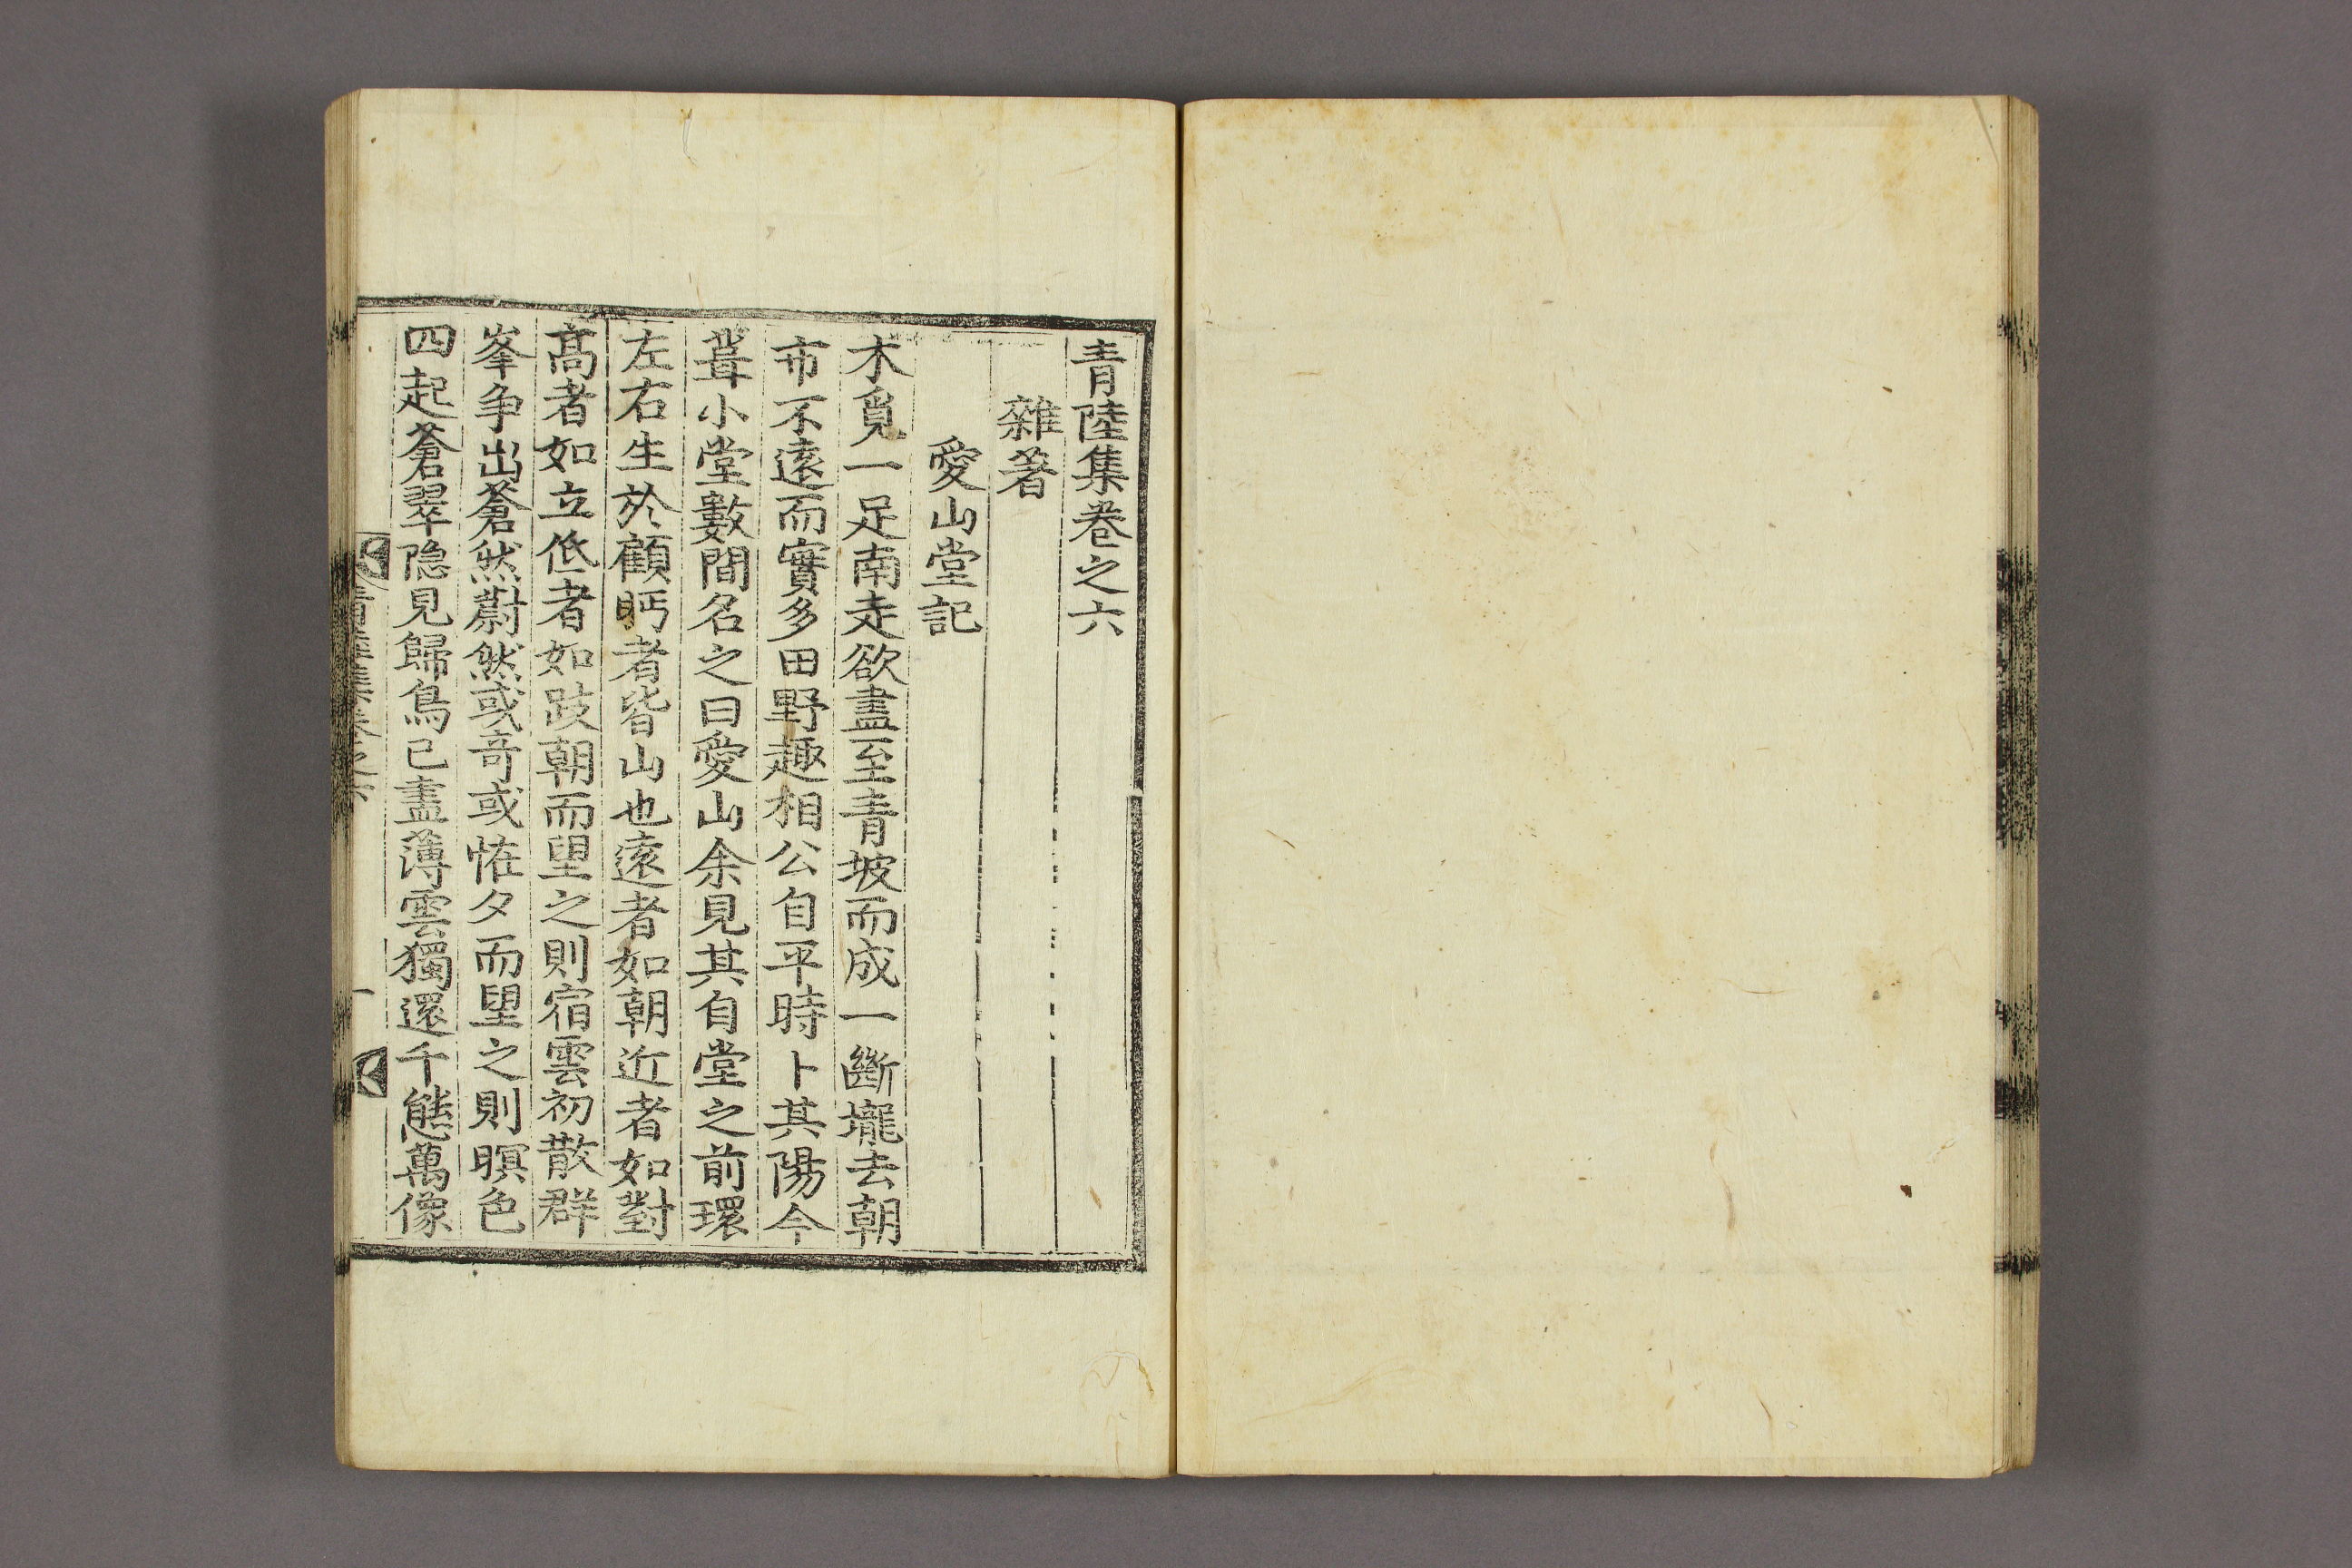 青陸集卷之六
雜著
愛山堂記
木覓一足南走欲盡至青坡而成一斷壠去朝
市不遠而實多田野趣相公自平時卜其陽今
葺小堂數間名之曰愛山余見其自堂之前環
左右生於顧眄者皆山也遠者如朝近者如對
高者如立低者如跂朝而望之則宿雲初散群
峯争出蒼然蔚然或竒或恠夕而望之則暝色
四起蒼翠隐見歸鳥已盡薄雲獨還千態萬像
青陸集卷之六 一